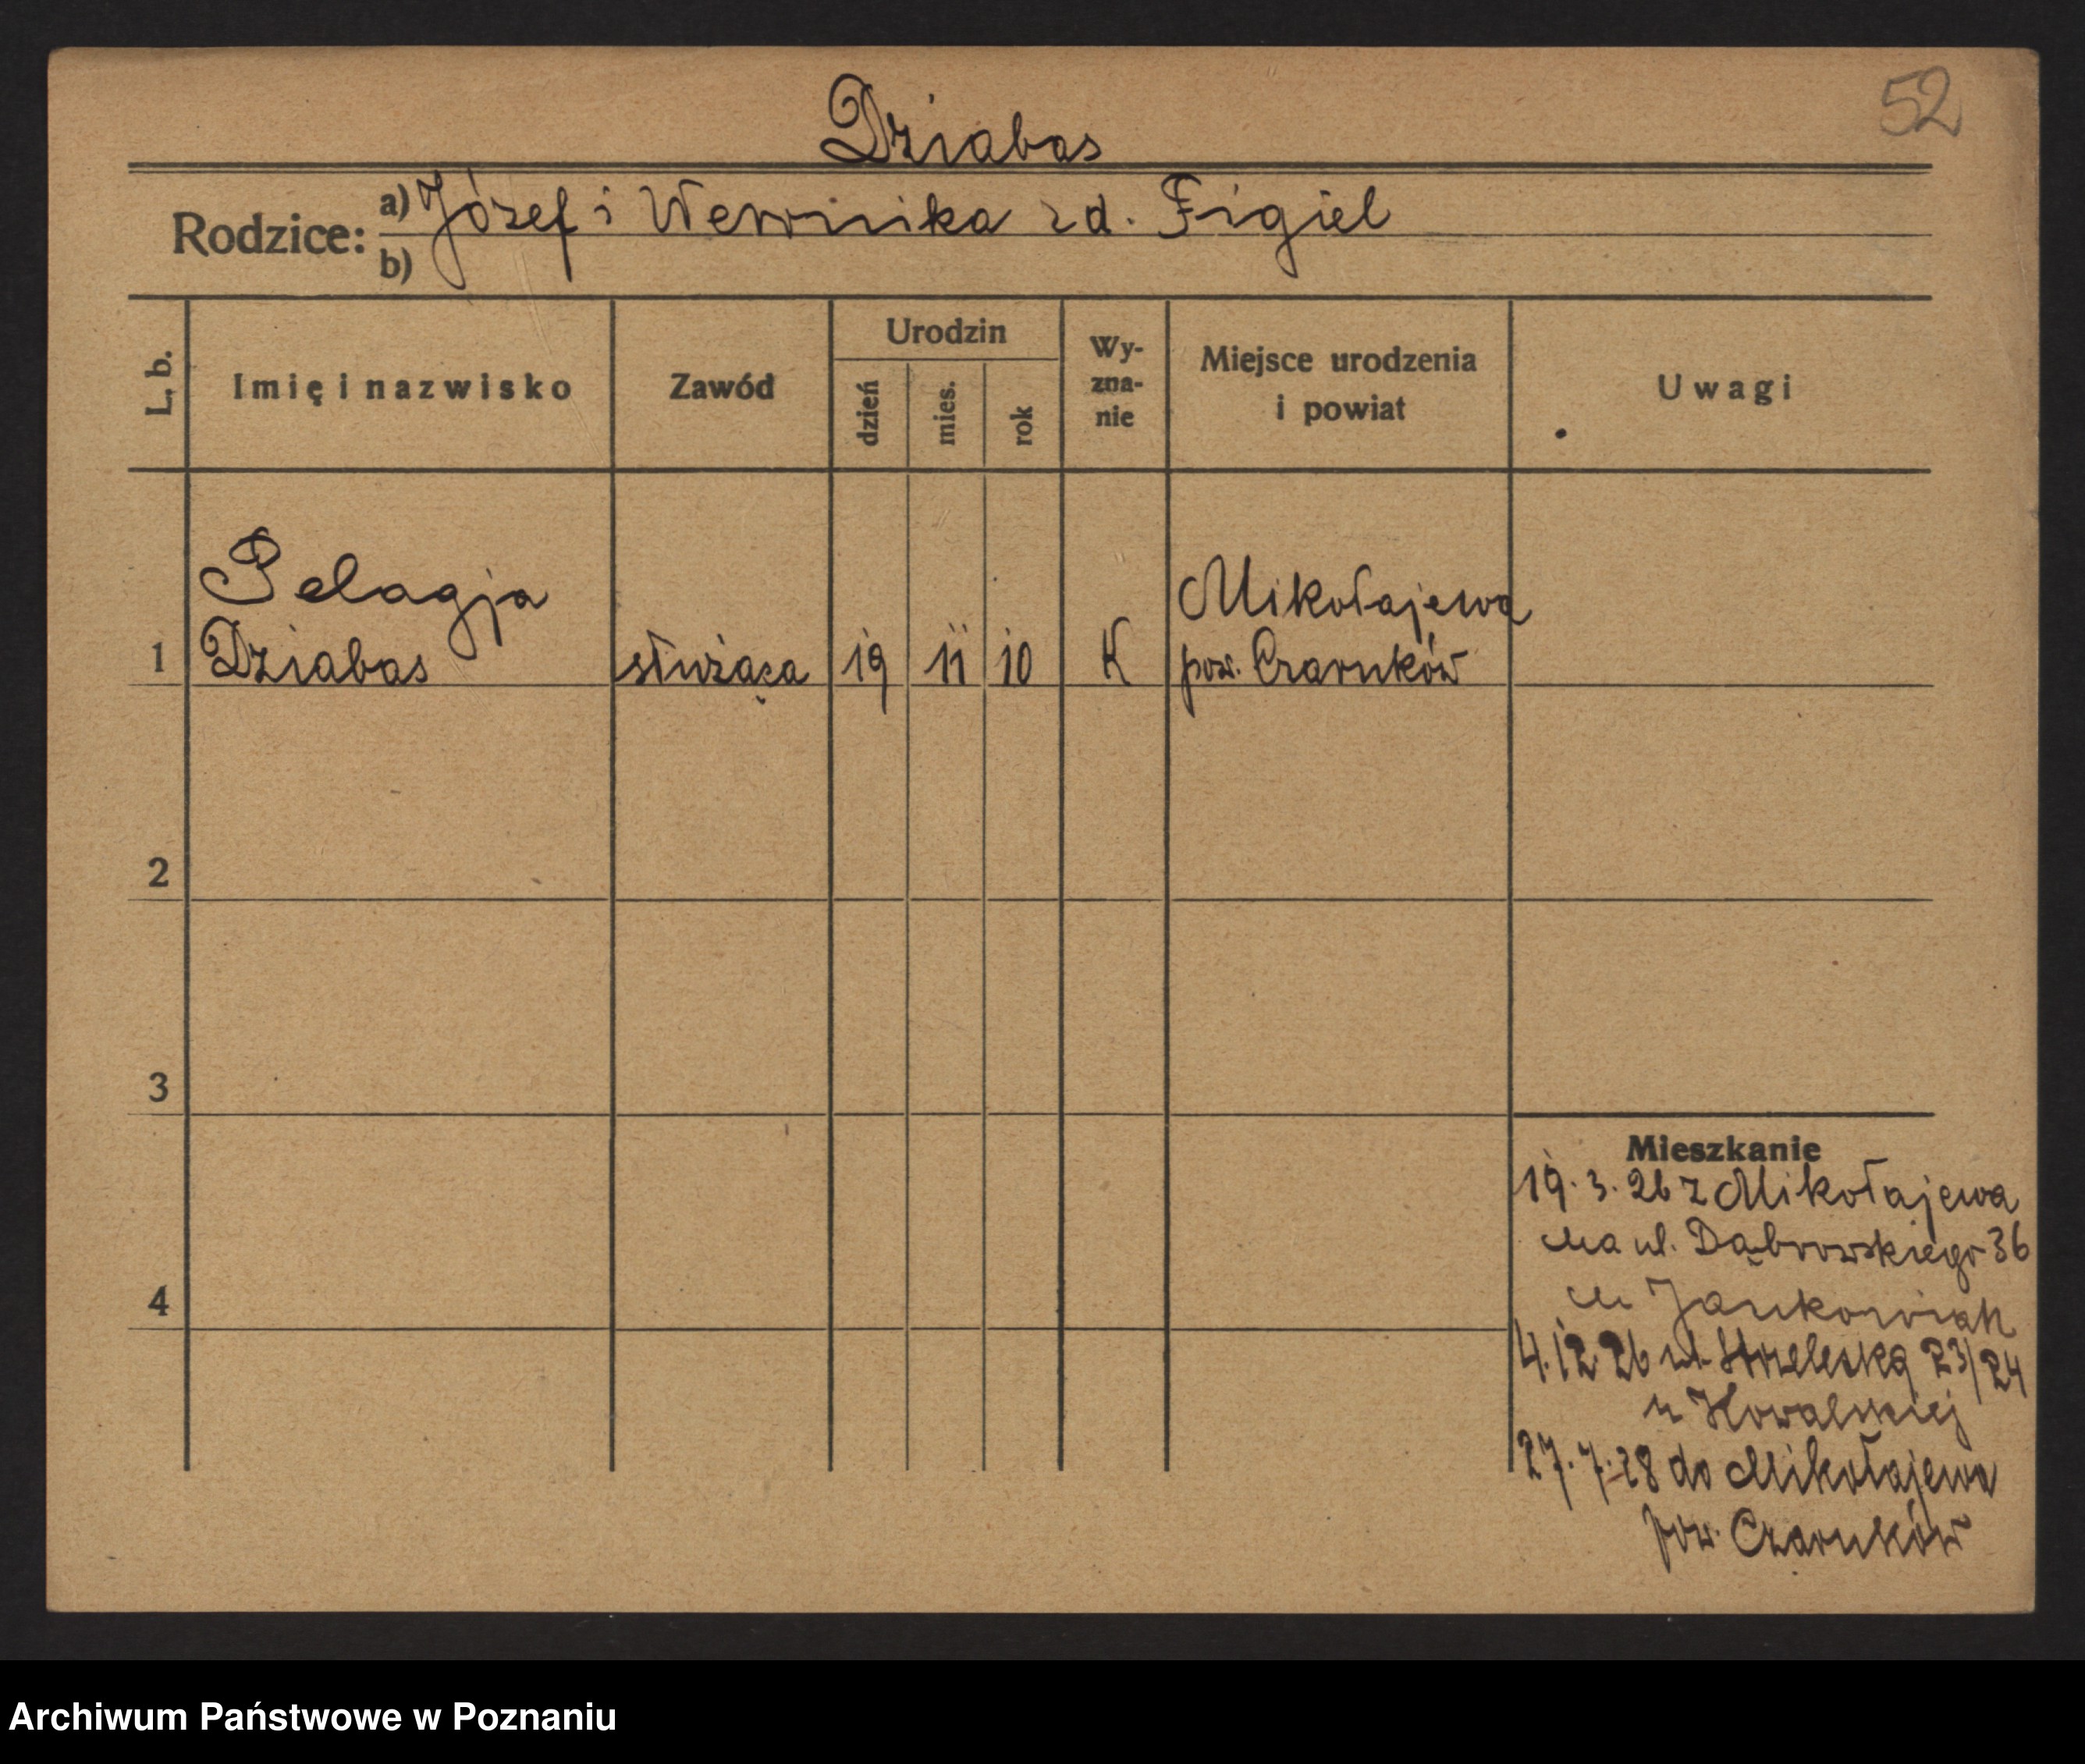 52
Dziabas
Rodzice: a) Józef i Weronika zd. Figiel
b)
L. b.
Imię i nazwisko
Zawód
Urodzin
dzień
mies.
rok
Wy-
zna-
nie
Miejsce urodzenia
i powiat
Uwagi
Pelagja
Mikołajewa
1 Dziabas służąca 19 11 10 K pow. Czarnków
2
3
4
Mieszkanie
19. 3. 26 z Mikołajewa
na ul. Dąbrowskiego 36
u Jankowiak
4. 12 26 ul. Strzelecka 23/24
u Kowalskiej
27. 7. 28 do Mikołajewa
pow. Czarnków
Archiwum Państwowe w Poznaniu